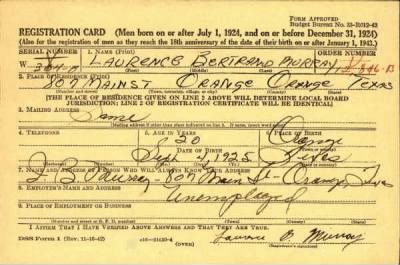 FORM APPROVED
Budget Bureau No. 33-R012-42
REGISTRATION CARD (Men born on or after July 1, 1924, and on or before December 31, 1924)
(Also for the registration of men as they reach the 18th anniversary of the date of their birth on or after January 1, 1943.)
SERIAL NUMBER 1. NAME (Print) ORDER NUMBER
W LAURENCE BERTRAND MURRAY
(First) (Middle) (Last)
2. PLACE OF RESIDENCE (Print)
MAIN ST ORANGE ORANGE TEXAS
(Number and street) (Town, township, village or city) (County) (State)
[THE PLACE OF RESIDENCE GIVEN ON LINE 2 ABOVE WILL DETERMINE LOCAL BOARD
JURISDICTION; LINE 2 OF REGISTRATION CERTIFICATE WILL BE IDENTICAL]
3. MAILING ADDRESS
Same
4. TELEPHONE 5. AGE IN YEARS 6. PLACE OF BIRTH
Orange
DATE OF BIRTH
Sept 1925 Texas
7. NAME AND ADDRESS OF PERSON WHO WILL ALWAYS KNOW YOUR ADDRESS
Murray Main St Orange, Texas
8. EMPLOYER'S NAME AND ADDRESS
Unemployed
9. PLACE OF EMPLOYMENT OR BUSINESS
(Number and street or R. F. D. number) (Town) (County) (State)
I AFFIRM THAT I HAVE VERIFIED ABOVE ANSWERS AND THAT THEY ARE TRUE.
DSS Form 1 (Rev. 11-16-42) B. Murray